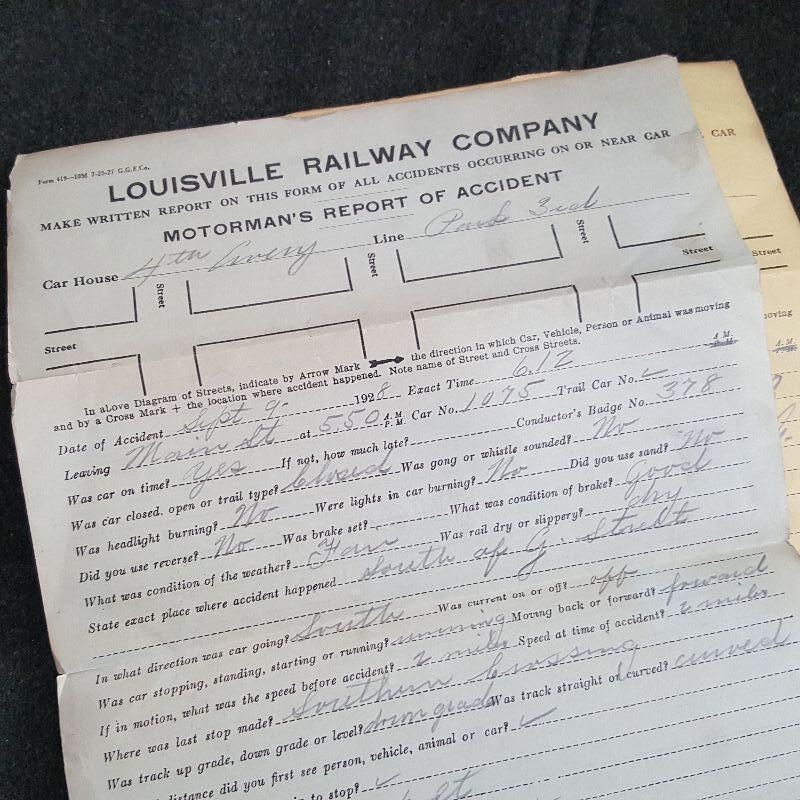 Form 419—10M 7-25-27 G.G.F.Co.
LOUISVILLE RAILWAY COMPANY
MAKE WRITTEN REPORT ON THIS FORM OF ALL ACCIDENTS OCCURRING ON OR NEAR CAR
MOTORMAN'S REPORT OF ACCIDENT
Car House 4th Line 3rd
Street Street Street
Street Street
In above Diagram of Streets, indicate by Arrow Mark the direction in which Car, Vehicle, Person or Animal was moving
and by a Cross Mark + the location where accident happened. Note name of Street and Cross Streets.
Date of Accident Sept 9 1928 Exact Time 612 A.M. P.M.
Leaving Main St at 550 A.M. P.M. Car No. 1075 Trail Car No. ✓
Was car on time? Yes If not, how much late? Conductor's Badge No. 378
Was car closed, open or trail type? Closed Was gong or whistle sounded? No
Was headlight burning? No Were lights in car burning? No Did you use sand? No
Did you use reverse? No Was brake set? What was condition of brake? Good
What was condition of the weather? Fair Was rail dry or slippery? dry
State exact place where accident happened South of G. Street
In what direction was car going? South Was current on or off? off
Was car stopping, standing, starting or running? running Moving back or forward? forward
If in motion, what was the speed before accident? 2 miles Speed at time of accident? 2 miles
Where was last stop made? Southern Crossing
Was track up grade, down grade or level? down grade Was track straight or curved? curved
distance did you first see person, vehicle, animal or car? ✓
to stop? ✓
CAR
Street
moving
A.M. P.M.